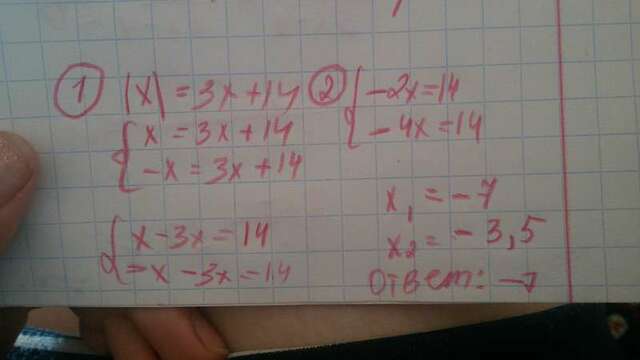 ① |x| = 3x + 14
x = 3x + 14
-x = 3x + 14
x - 3x = 14
-x - 3x = 14
② -2x = 14
-4x = 14
x₁ = -7
x₂ = -3,5
Ответ: -7